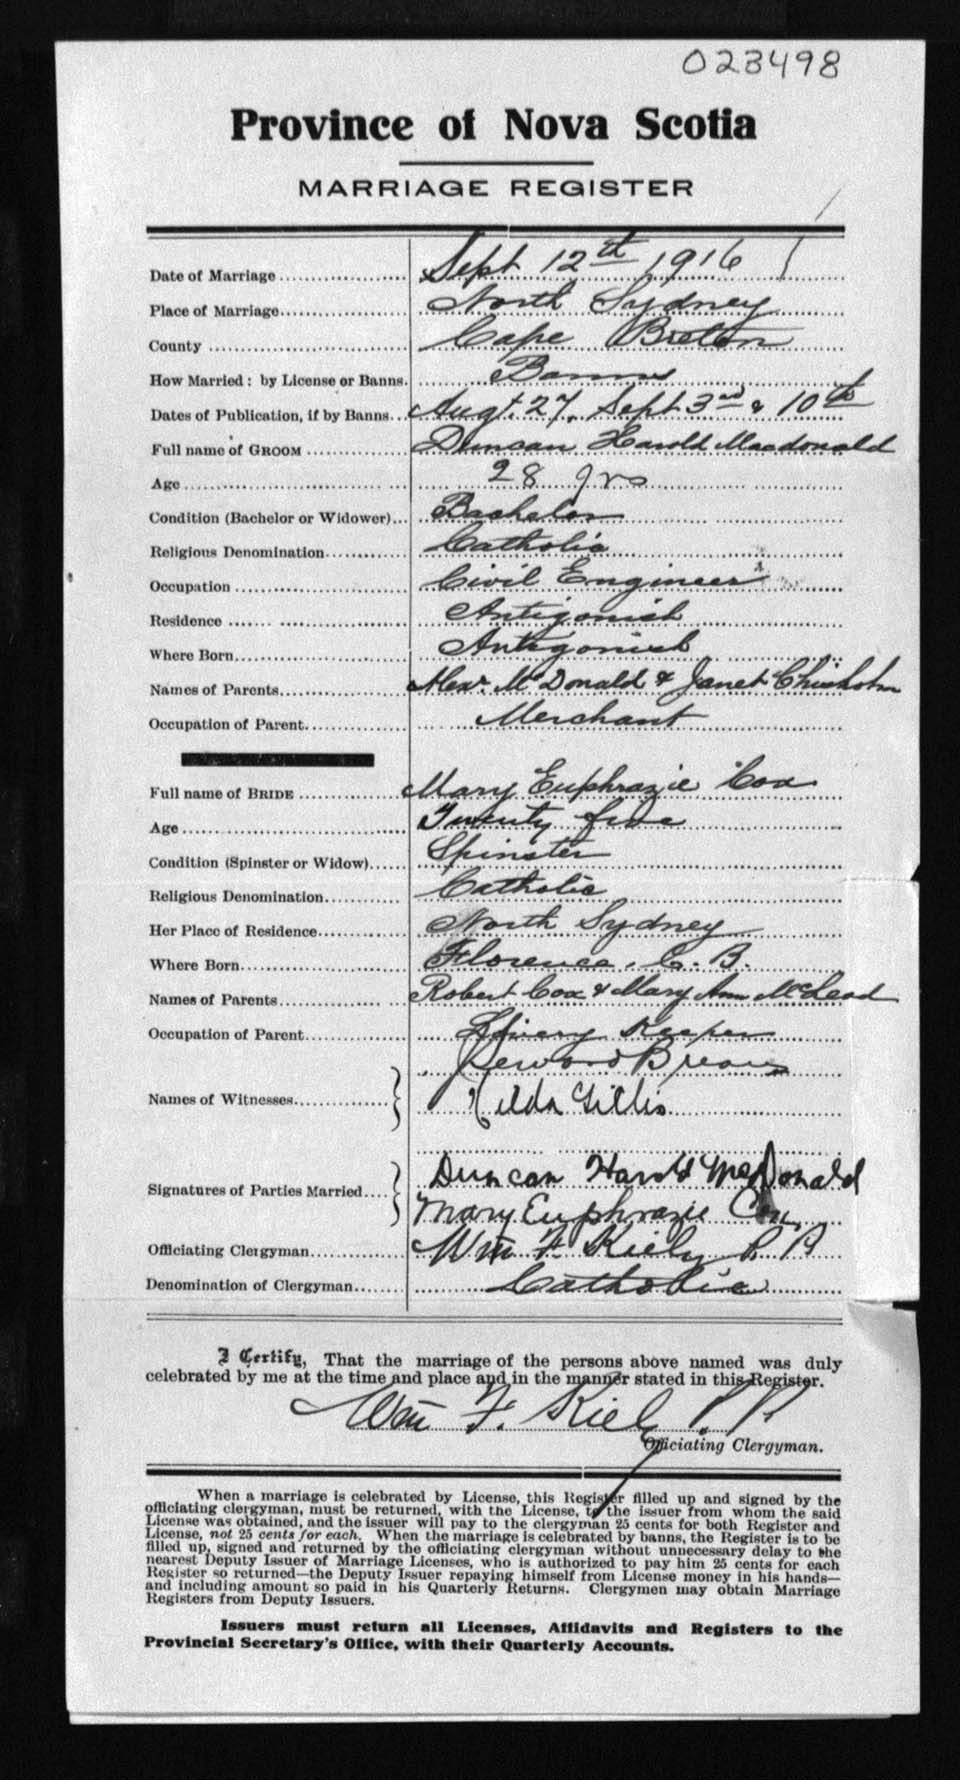 023498
Province of Nova Scotia
MARRIAGE REGISTER
Date of Marriage Sept 12th 1916
Place of Marriage North Sydney
County Cape Breton
How Married: by License or Banns. Banns
Dates of Publication, if by Banns Augt. 27, Sept 3rd & 10th
Full name of GROOM Duncan Harold Macdonald
Age 28 yrs
Condition (Bachelor or Widower) Bachelor
Religious Denomination Catholic
Occupation Civil Engineer
Residence Antigonish
Where Born Antigonish
Names of Parents Alexr. McDonald & Janet Chisholm
Occupation of Parent Merchant
Full name of BRIDE Mary Euphrazie Cox
Age Twenty five
Condition (Spinster or Widow) Spinster
Religious Denomination Catholic
Her Place of Residence North Sydney
Where Born Florence, C. B.
Names of Parents Robert Cox & Mary Ann McLeod
Occupation of Parent Livery Keeper
Names of Witnesses
Hilda Gillis
Signatures of Parties Married Duncan Harold McDonald
Mary Euphrazie Cox
Officiating Clergyman Wm F. Kiely P. P.
Denomination of Clergyman Catholic
I Certify, That the marriage of the persons above named was duly
celebrated by me at the time and place and in the manner stated in this Register.
Wm F. Kiely P. P.
Officiating Clergyman.
When a marriage is celebrated by License, this Register filled up and signed by the
officiating clergyman, must be returned, with the License, to the issuer from whom the said
License was obtained, and the issuer will pay to the clergyman 25 cents for both Register and
License, not 25 cents for each. When the marriage is celebrated by banns, the Register is to be
filled up, signed and returned by the officiating clergyman without unnecessary delay to the
nearest Deputy Issuer of Marriage Licenses, who is authorized to pay him 25 cents for each
Register so returned—the Deputy Issuer repaying himself from License money in his hands—
and including amount so paid in his Quarterly Returns. Clergymen may obtain Marriage
Registers from Deputy Issuers.
Issuers must return all Licenses, Affidavits and Registers to the
Provincial Secretary's Office, with their Quarterly Accounts.